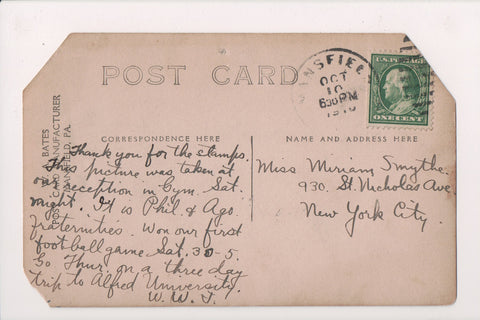 POST CARD
MANSFIELD
OCT
10
630PM
1910
U.S. POSTAGE
ONE CENT
BATES
POST CARD MANUFACTURER
MANSFIELD, PA.
CORRESPONDENCE HERE
Thank you for the stamps.
This picture was taken at
our reception in Gym. Sat.
night. It is Phil. & Ago.
Fraternities. Won our first
football game Sat. 30-5.
Go Thur. on a three day
trip to Alfred University.
W. W. J.
NAME AND ADDRESS HERE
Miss Miriam Smythe.
930 St. Nicholas Ave.
New York City.